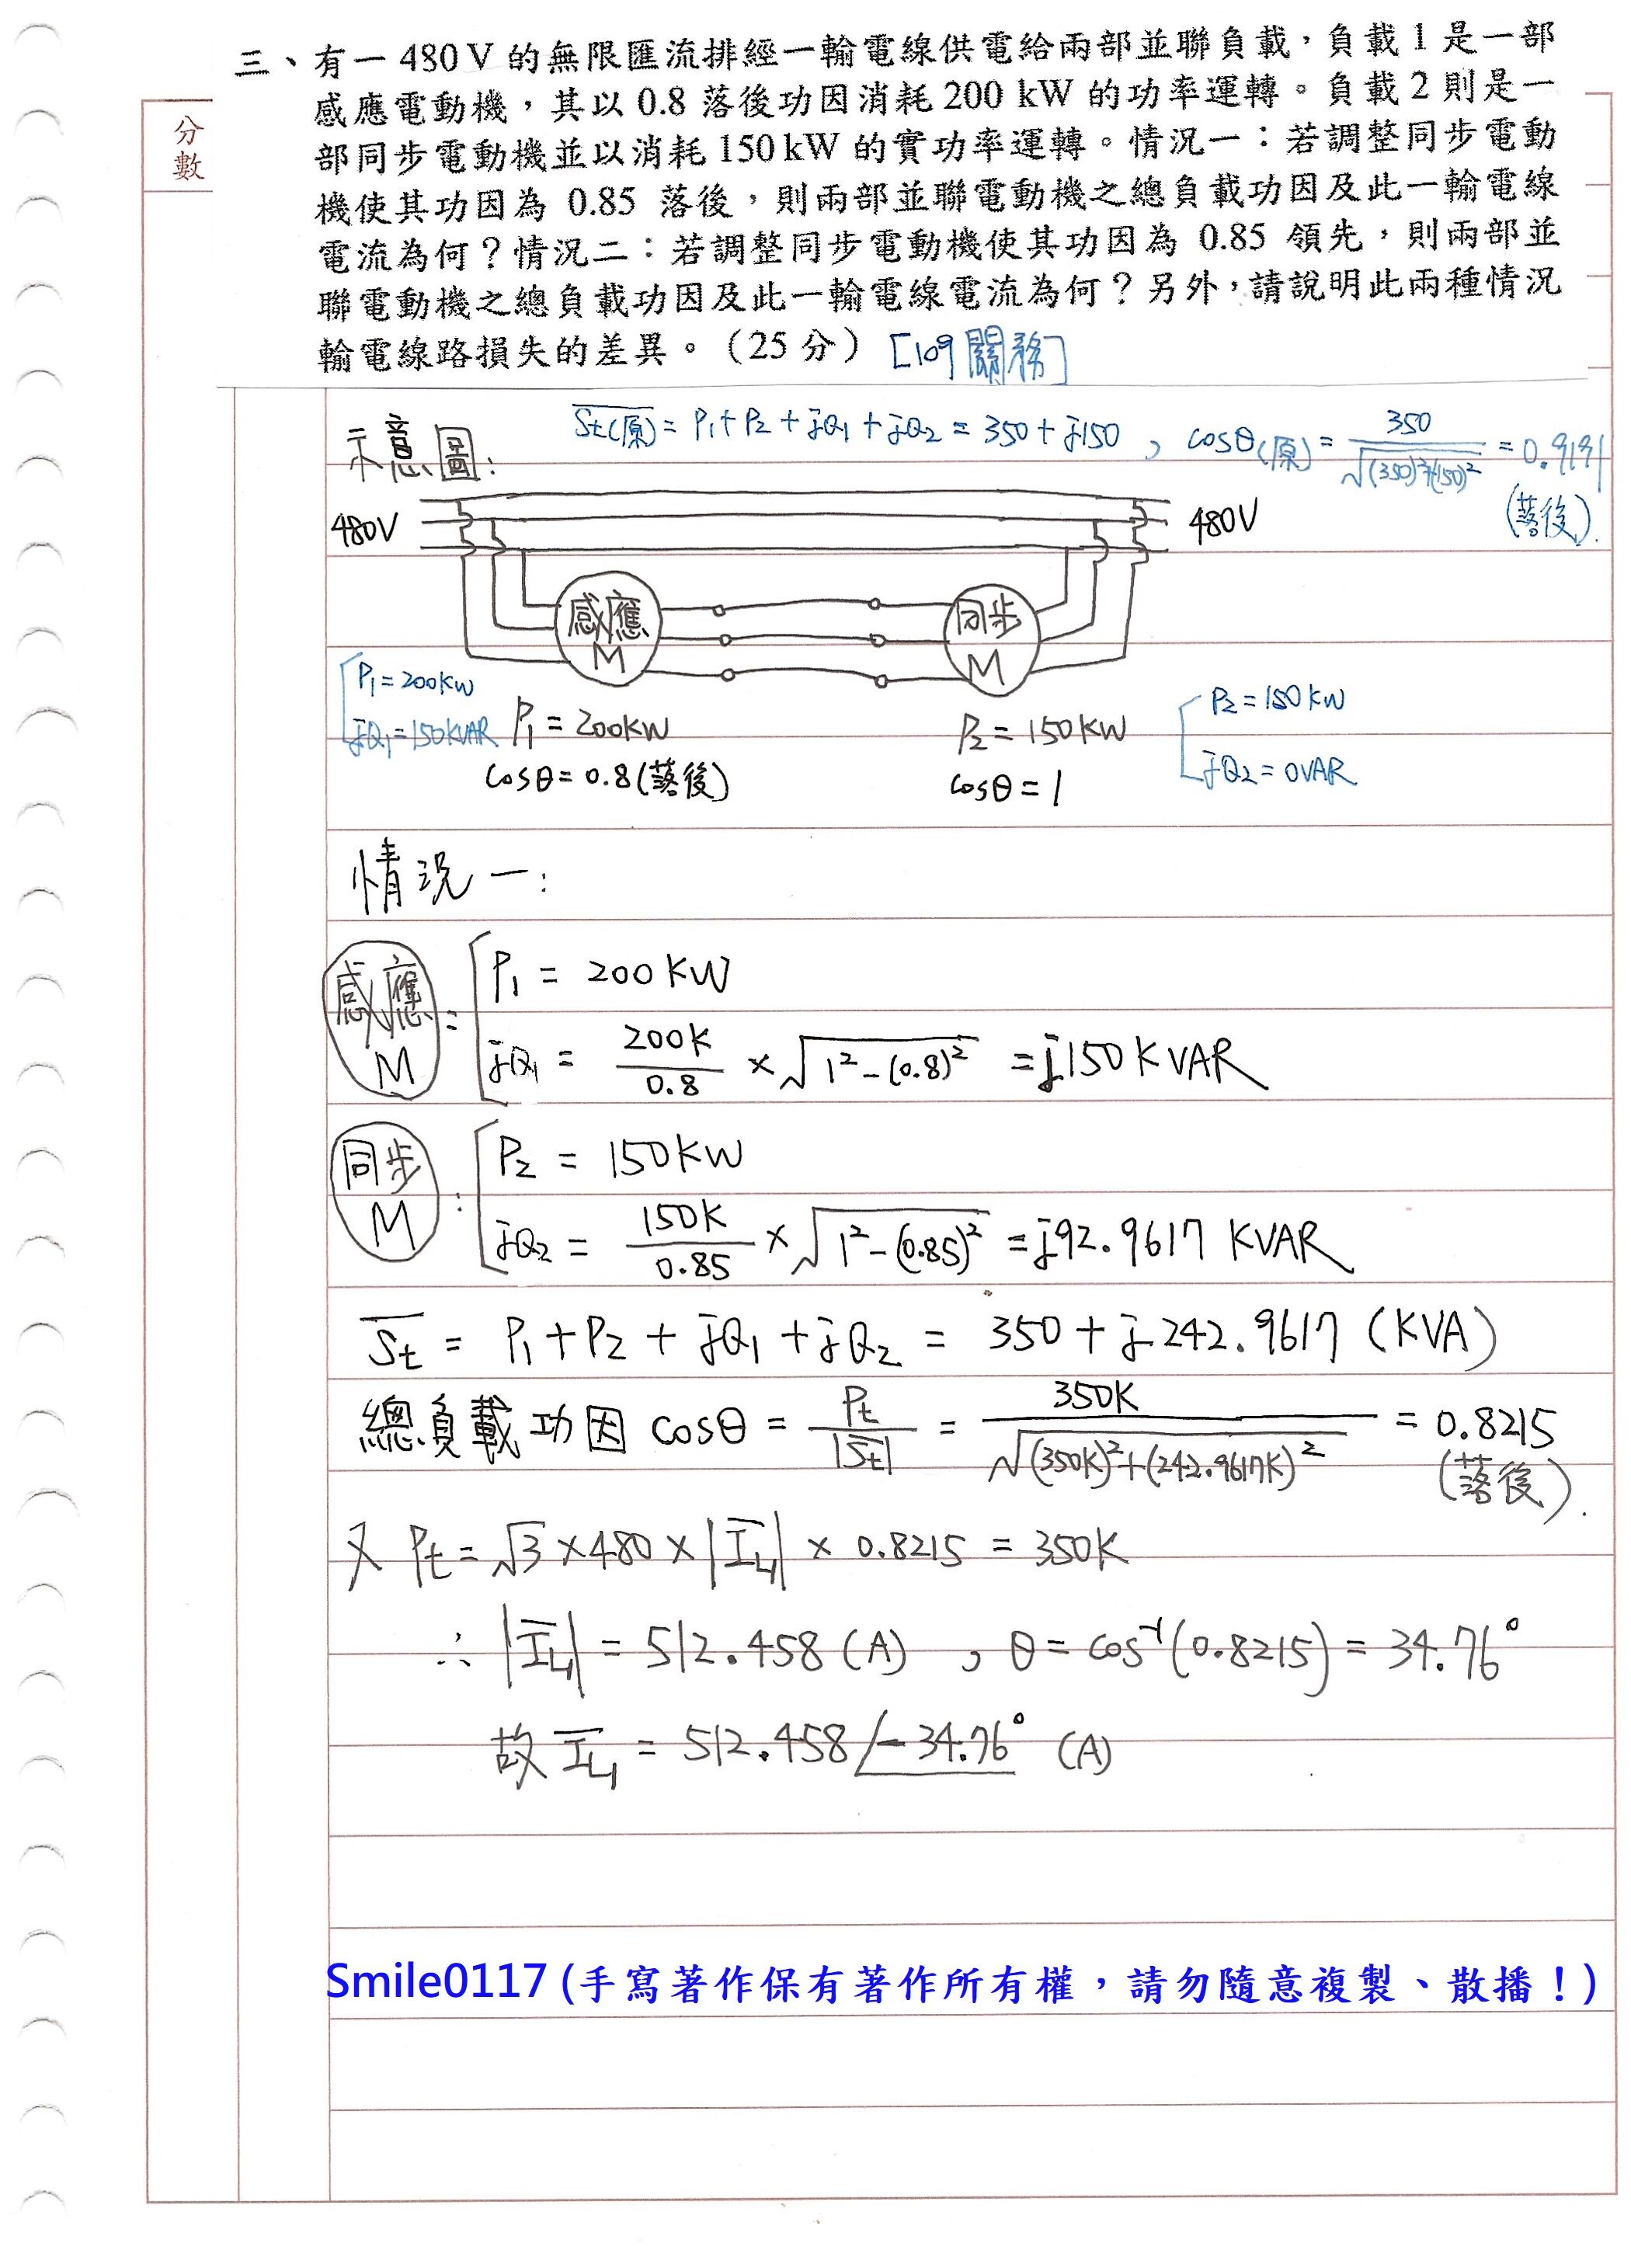 三、有一 480 V 的無限匯流排經一輸電線供電給兩部並聯負載，負載 1 是一部
感應電動機，其以 0.8 落後功因消耗 200 kW 的功率運轉。負載 2 則是一
部同步電動機並以消耗 150 kW 的實功率運轉。情況一：若調整同步電動
機使其功因為 0.85 落後，則兩部並聯電動機之總負載功因及此一輸電線
電流為何？情況二：若調整同步電動機使其功因為 0.85 領先，則兩部並
聯電動機之總負載功因及此一輸電線電流為何？另外，請說明此兩種情況
輸電線路損失的差異。（25 分） [109關務]
分數
示意圖：
St(原) = P1 + P2 + jQ1 + jQ2 = 350 + j150 , cosθ(原) = 350 / √(350)²+(150)² = 0.9191
(落後).
480V 480V
感應 M 同步 M
P1 = 200KW
jQ1 = 150KVAR
P1 = 200KW
cosθ = 0.8 (落後)
P2 = 150KW
cosθ = 1
P2 = 150KW
jQ2 = 0VAR
情況一：
感應 M : P1 = 200KW
jQ1 = 200K / 0.8 × √1²-(0.8)² = j150KVAR
同步 M : P2 = 150KW
jQ2 = 150K / 0.85 × √1²-(0.85)² = j92.9617 KVAR
St = P1 + P2 + jQ1 + jQ2 = 350 + j242.9617 (KVA)
總負載功因 cosθ = Pt / |St| = 350K / √(350K)²+(242.9617K)² = 0.8215
(落後).
又 Pt = √3 × 480 × |IL1| × 0.8215 = 350K
∴ |IL1| = 512.458 (A) , θ = cos⁻¹(0.8215) = 34.76°
故 IL1 = 512.458 ∠-34.76° (A)
Smile0117 (手寫著作保有著作所有權，請勿隨意複製、散播！)